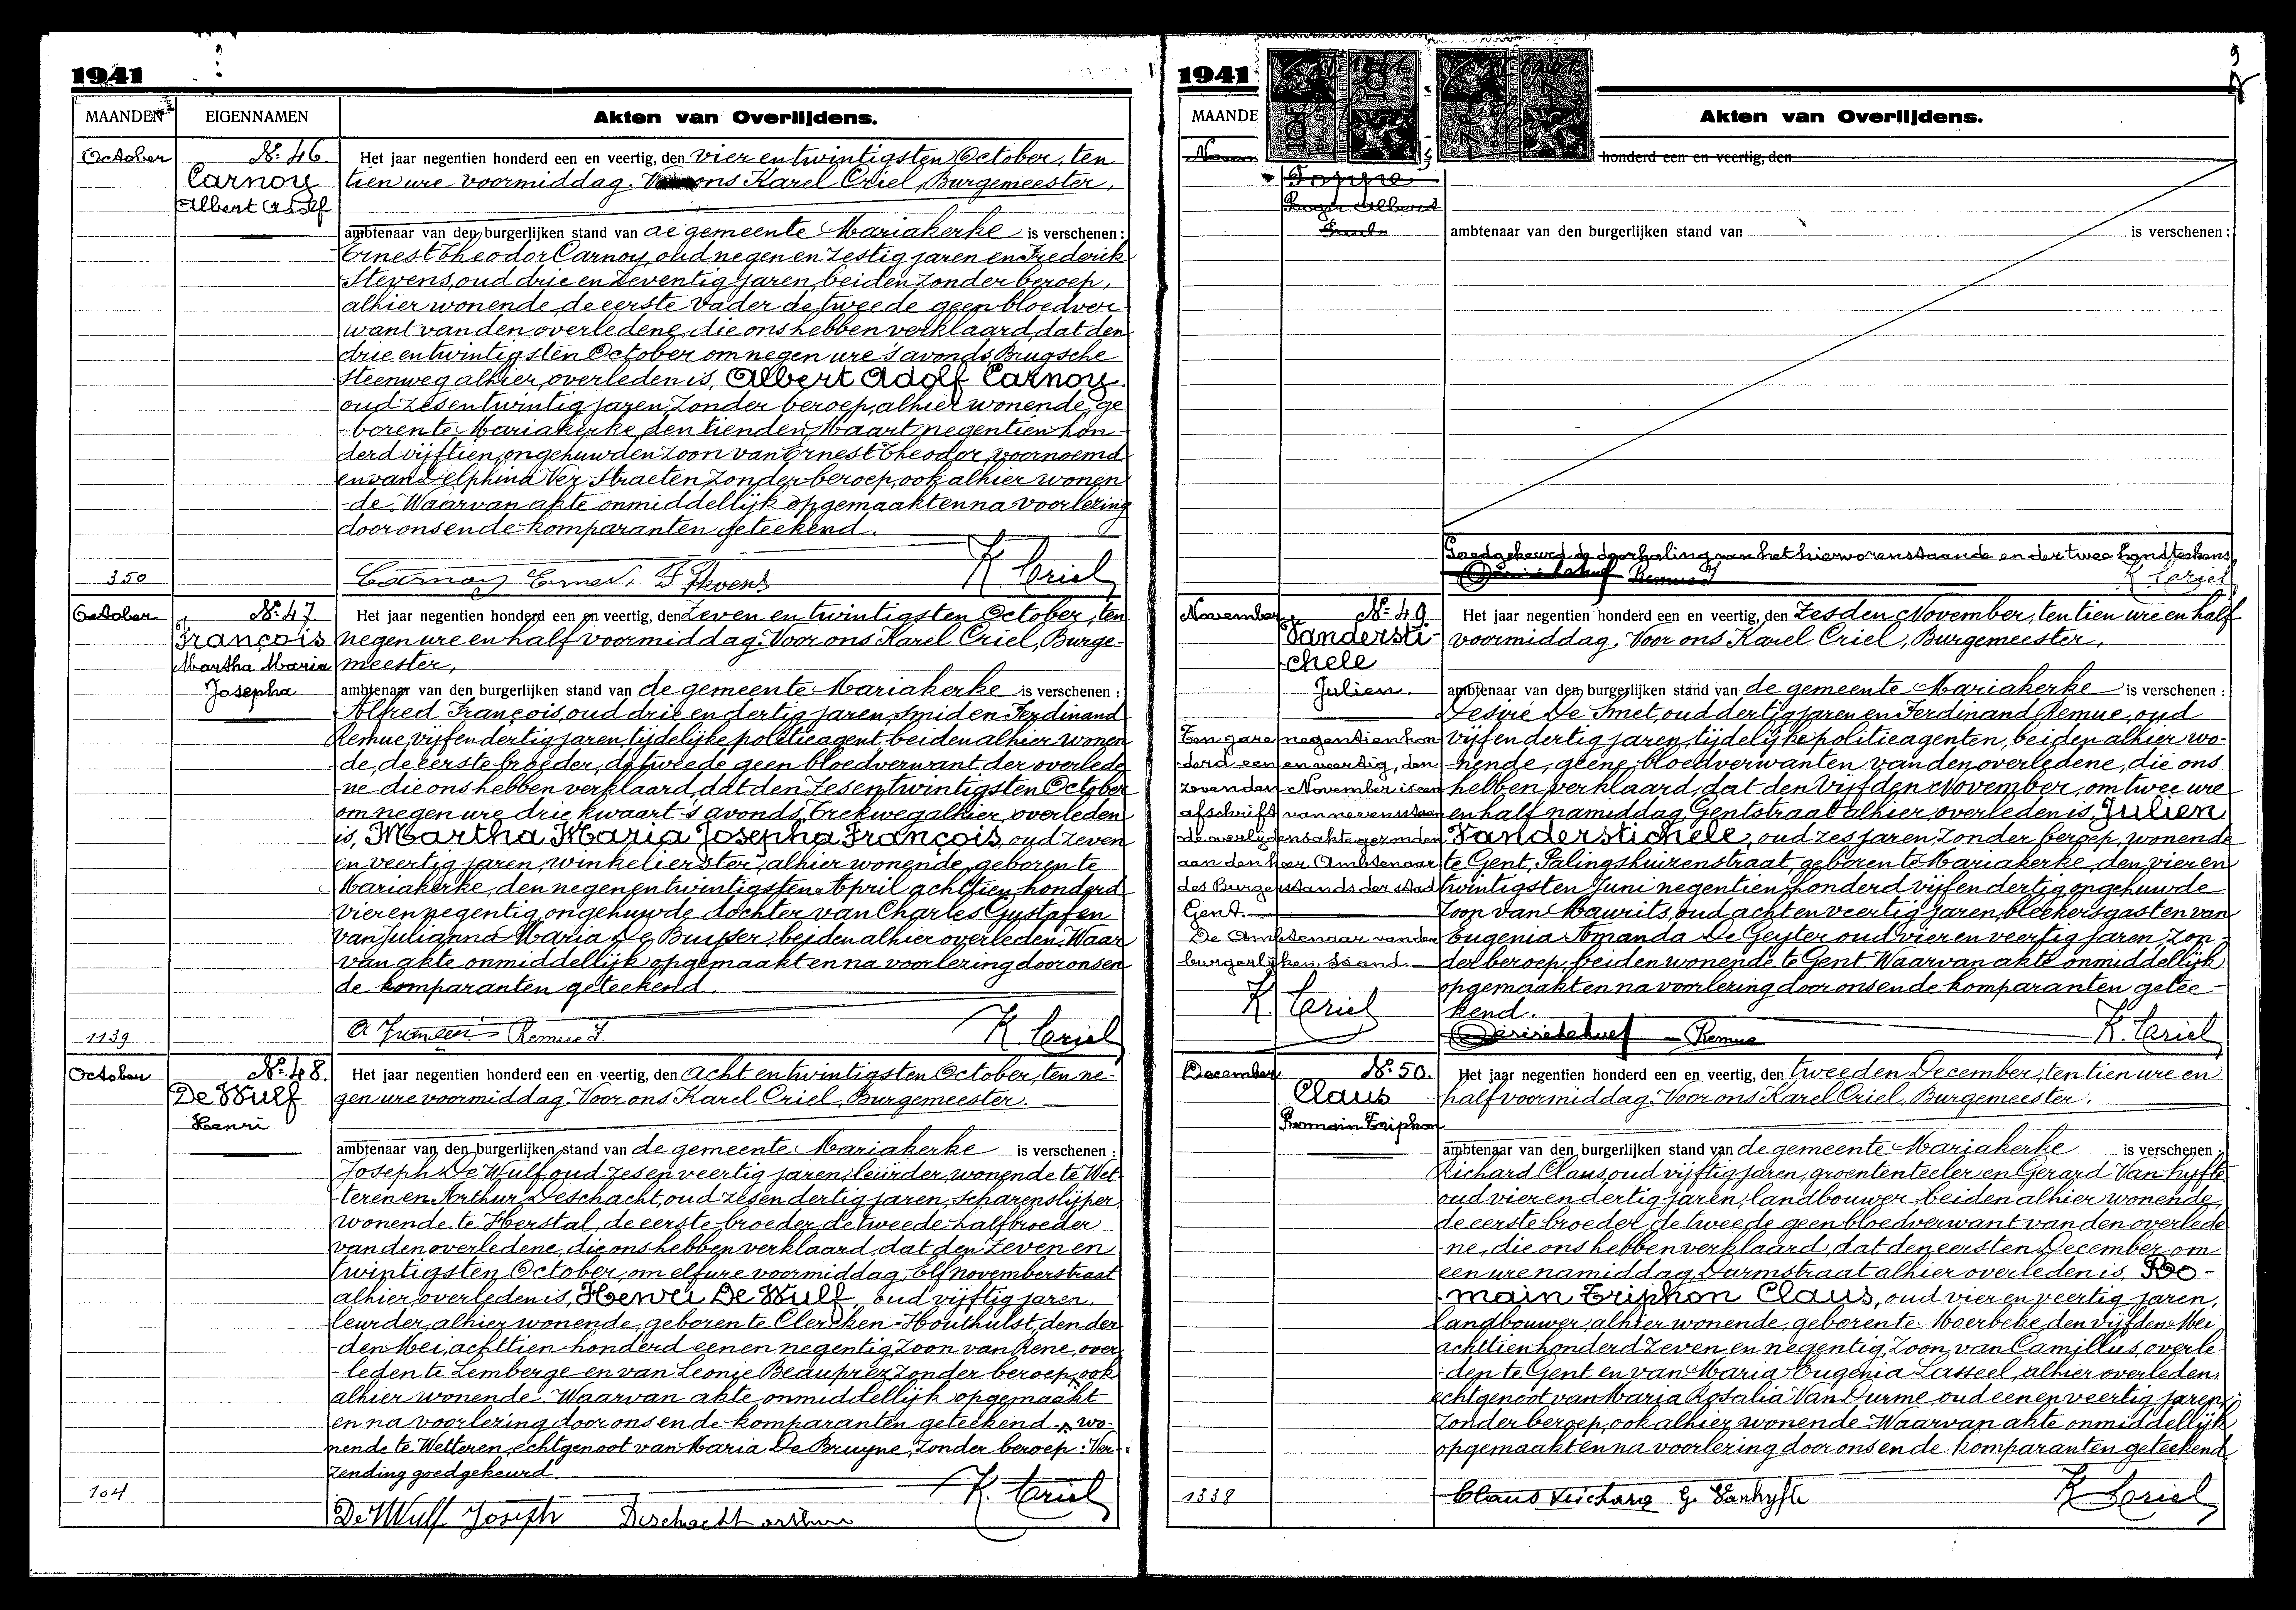 1941
MAANDEN
EIGENNAMEN
Akten van Overlijdens.
October
Nr. 46.
Carnoy
Albert Adolf
Het jaar negentien honderd een en veertig, den vier en twintigsten October, ten
tien ure voormiddag. Voor ons Karel Criel, Burgemeester,
ambtenaar van den burgerlijken stand van de gemeente Mariakerke is verschenen:
Ernest Theodor Carnoy, oud negen en zestig jaren en Frederik
Stevens, oud drie en zeventig jaren, beiden zonder beroep,
alhier wonende, de eerste vader de tweede geen bloedver-
want van den overledene, die ons hebben verklaard, dat den
drie en twintigsten October om negen ure 's avonds Brugsche
Steenweg alhier, overleden is, Albert Adolf Carnoy
oud zes en twintig jaren, zonder beroep, alhier wonende, ge
boren te Mariakerke, den tienden Maart negentien hon-
derd vijftien, ongehuwden zoon van Ernest Theodor, voornoemd
en van Delphina Ver Straeten, zonder beroep, ook alhier wonen
-de. Waarvan akte onmiddellijk opgemaakt en na voorlezing
door ons en de komparanten geteekend.
350
Carnoy Ernest. F Stevens K. Criel
October
Nr. 47.
François
Martha Maria
Josepha
Het jaar negentien honderd een en veertig, den zeven en twintigsten October, ten
negen ure en half voormiddag. Voor ons Karel Criel, Burge-
meester,
ambtenaar van den burgerlijken stand van de gemeente Mariakerke is verschenen:
Alfred François, oud drie en dertig jaren, smid en Ferdinand
Remue, vijf en dertig jaren, tijdelijke politieagent, beiden alhier wonen
de, de eerste broeder, de tweede geen bloedverwant der overlede
-ne die ons hebben verklaard, dat den zes en twintigsten October
om negen ure drie kwaart 's avonds, Trekweg alhier, overleden
is, Martha Maria Josepha François, oud zeven
en veertig jaren, winkelierster, alhier wonende, geboren te
Mariakerke, den negen en twintigsten April achttien honderd
vier en negentig, ongehuwde dochter van Charles Gustaf en
van Julianna Maria De Buyser, beiden alhier overleden. Waar
van akte onmiddellijk opgemaakt en na voorlezing door ons en
de komparanten geteekend.
1139
Remue F. K. Criel
October
Nr. 48.
De Wulf
Henri
Het jaar negentien honderd een en veertig, den acht en twintigsten October, ten ne-
gen ure voormiddag. Voor ons Karel Criel, Burgemeester
ambtenaar van den burgerlijken stand van de gemeente Mariakerke is verschenen:
Joseph De Wulf, oud zes en veertig jaren, leurder, wonende te Wet-
-teren en Arthur Deschacht, oud zes en dertig jaren, scharenslijper,
wonende te Herstal, de eerste broeder, de tweede halfbroeder
van den overledene, die ons hebben verklaard, dat den zeven en
twintigsten October, om elf ure voormiddag, Elf novemberstraat
alhier, overleden is, Henri De Wulf, oud vijftig jaren,
leurder, alhier wonende, geboren te Clercken-Houthulst, den der
-den Mei, achttien honderd een en negentig, zoon van Rene, over
-leden te Lemberge en van Leonie Beauprez, zonder beroep, ook
alhier wonende. Waarvan akte onmiddellijk opgemaakt
en na voorlezing door ons en de komparanten geteekend. wo-
nende te Wetteren, echtgenoot van Maria De Bruyne, zonder beroep: Ver-
zending goedgekeurd.
104
De Wulf Joseph Deschacht arthur K. Criel
1941
MAANDE
Akten van Overlijdens.
honderd een en veertig, den
ambtenaar van den burgerlijken stand van is verschenen:
Goedgekeurd de doorhaling van het hiervorenstaande en der twee handteekens
Remue F K. Criel
November
Nr. 49.
Vandersti-
chele
Julien.
Ten jare negentien hon
derd een en veertig, den
zevenden November is een
afschrift van nevensstaan
de overlijdensakte gezonden
aan den heer Ambtenaar
des Burgerstands der stad
Gent.
De Ambtenaar van den
burgerlijken stand.
K. Criel
Het jaar negentien honderd een en veertig, den zesden November, ten tien ure en half
voormiddag. Voor ons Karel Criel, Burgemeester,
ambtenaar van den burgerlijken stand van de gemeente Mariakerke is verschenen:
Desiré De Smet, oud dertig jaren en Ferdinand Remue, oud
vijf en dertig jaren, tijdelijke politieagenten, beiden alhier wo-
-nende, geene bloedverwanten van den overledene, die ons
hebben verklaard, dat den vijfden November, om twee ure
en half namiddag, Gentstraat alhier, overleden is, Julien
Vanderstichele, oud zes jaren, zonder beroep, wonende
te Gent, Palingshuizenstraat, geboren te Mariakerke, den vier en
twintigsten Juni negentien honderd vijf en dertig, ongehuwde
zoon van Maurits, oud acht en veertig jaren, bleekersgast en van
Eugenia Amanda De Geyter oud vier en veertig jaren, zon-
der beroep, beiden wonende te Gent. Waarvan akte onmiddellijk
opgemaakt en na voorlezing door ons en de komparanten getee-
kend.
Remue K. Criel
December
Nr. 50.
Claus
Romain Triphon
Het jaar negentien honderd een en veertig, den tweeden December, ten tien ure en
half voormiddag. Voor ons Karel Criel, Burgemeester,
ambtenaar van den burgerlijken stand van de gemeente Mariakerke is verschenen:
Richard Claus, oud vijftig jaren, groententeeler en Gerard Van hyfte
oud vier en dertig jaren, landbouwer, beiden alhier wonende,
de eerste broeder, de tweede geen bloedverwant van den overlede
-ne, die ons hebben verklaard, dat den eersten December om
een ure namiddag, Durmstraat alhier overleden is, Ro-
main Triphon Claus, oud vier en veertig jaren,
landbouwer, alhier wonende, geboren te Moerbeke, den vijfden Mei
achttien honderd zeven en negentig, zoon van Camillus, overle-
-den te Gent en van Maria Eugenia Lasseel, alhier overleden,
echtgenoot van Maria Rosalia Van Durme oud een en veertig jaren,
zonder beroep, ook alhier wonende. Waarvan akte onmiddellijk
opgemaakt en na voorlezing door ons en de komparanten geteekend
1338
Claus Richard G. Vanhyfte K. Criel